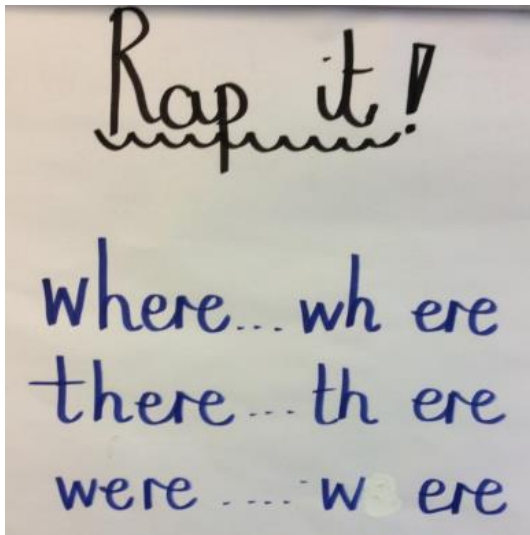 Rap it!
where... wh ere
there... th ere
were ..... w ere